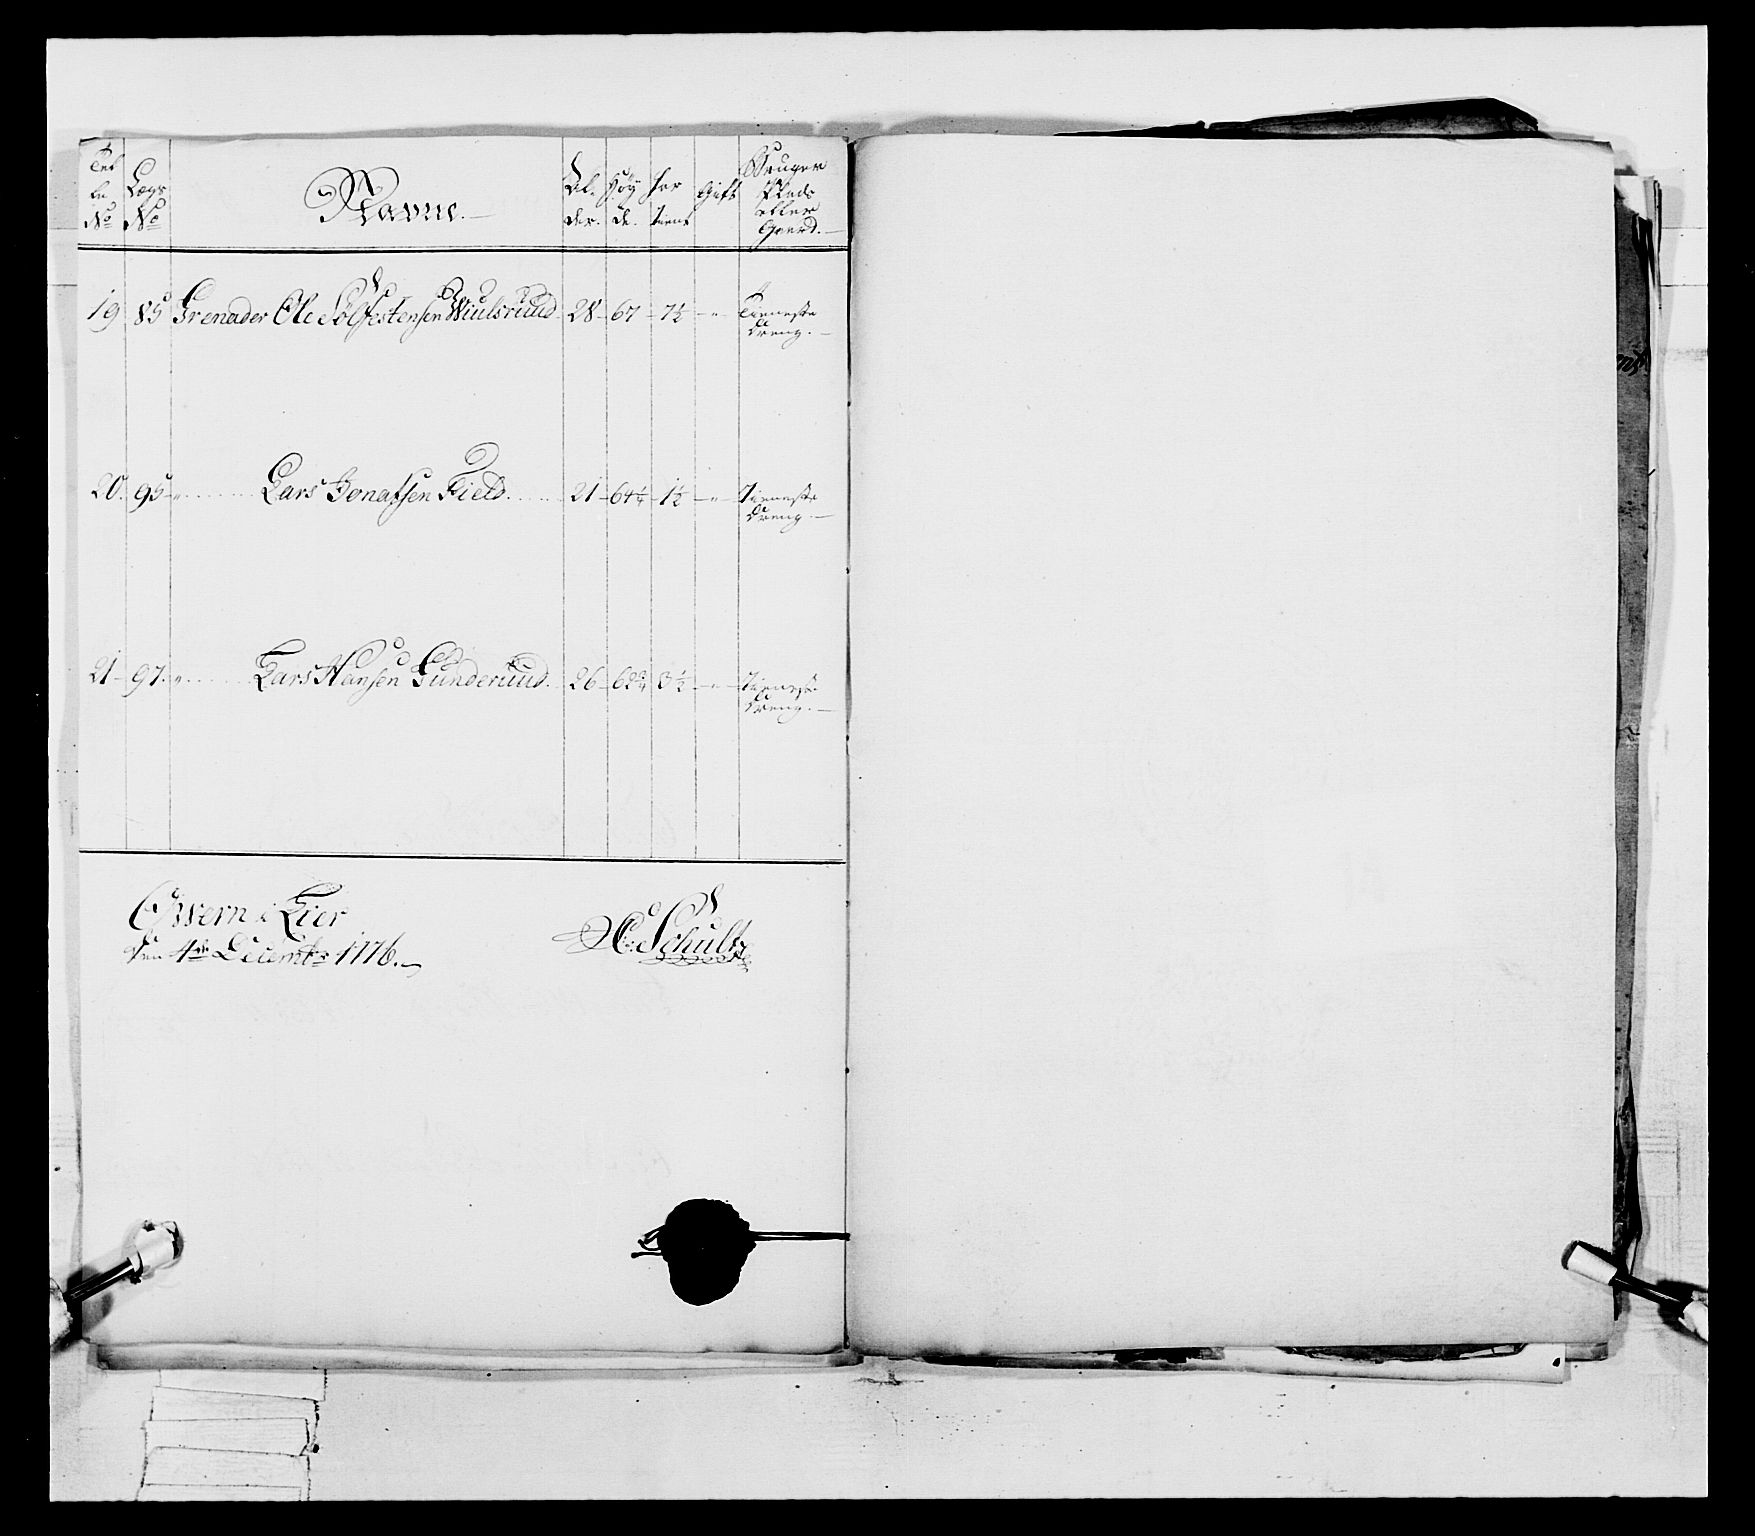 Tal Lægs Navne. Al- Høy- har Gift Bruger
le No der. de. tient Plads
No eller
Gaard.
19 85 Grenader Ole Solfestensen Wiulsruud 28 - 67 - 7½ - " Tieneste
dreng.
20. 95 - " Lars Jonassen Field. 21 - 64¼ - 1½ - " - Tieneste
dreng.
21 - 97. " Lars Hansen Gunderuud. 26 - 62¾ 3½ - " - Tieneste
dreng.
Hwern i Lier
den 4de Decembr 1776.
HC: Schultz